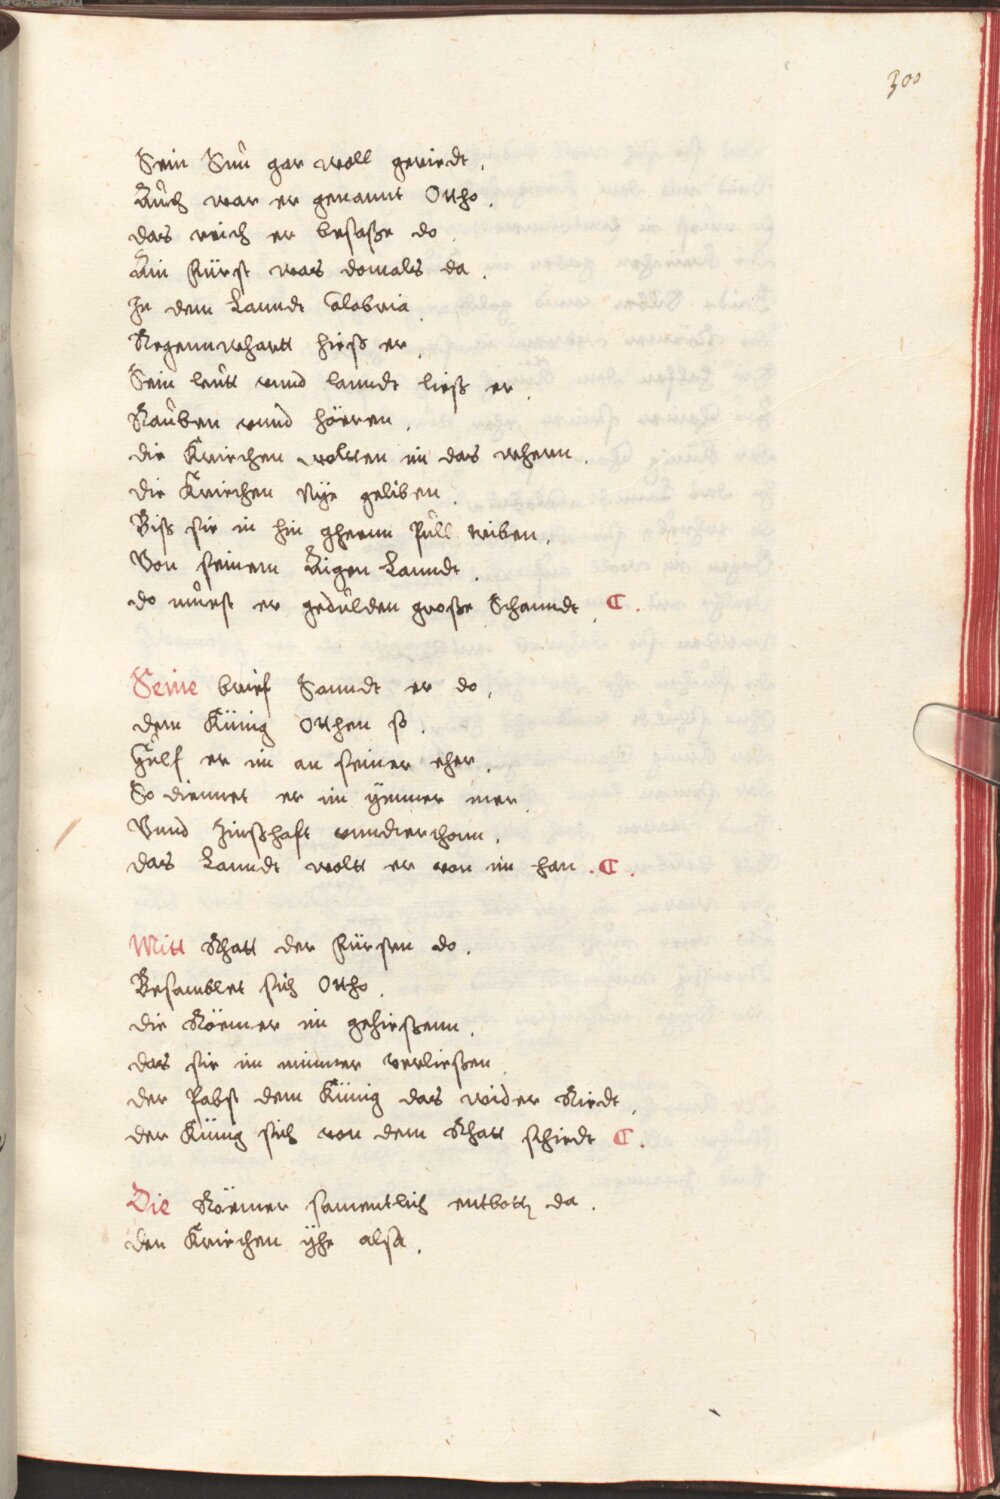 300
Sein Sun gar woll geriedt.
Auch war er genannt Ottho.
das reich er besaße do.
Ain Fürst was domals da.
In dem Lanndt Calabria.
Regennwhartt hieß er.
Sein leutt vnnd lanndt ließ er.
Rauben vnnd hören.
die Kriechen wolten im das whern.
die Kriechen Nye geliben.
Biß sie in hin ghenn Pull triben.
Von seinem Aigen Lanndt.
do muest er gedulden große Schanndt.
Seine brief Sanndt er do.
dem Künig Otthen so.
Hulf er im an seiner eher.
So diennet er im ymmer mer.
Vnnd Zinßhaft vnndterthann.
das Lanndt woltt er von im han.
Mitt Rhatt der Fürsten do.
Besamblet sich Ottho.
die Römer im gehießenn.
das sie im nimmer verließen.
der Pabst dem Künig das wider Riedt.
der Künig sich von dem Rhatt schiedt.
Die Römer samentlich entbott da.
den Kriechen yhe also.